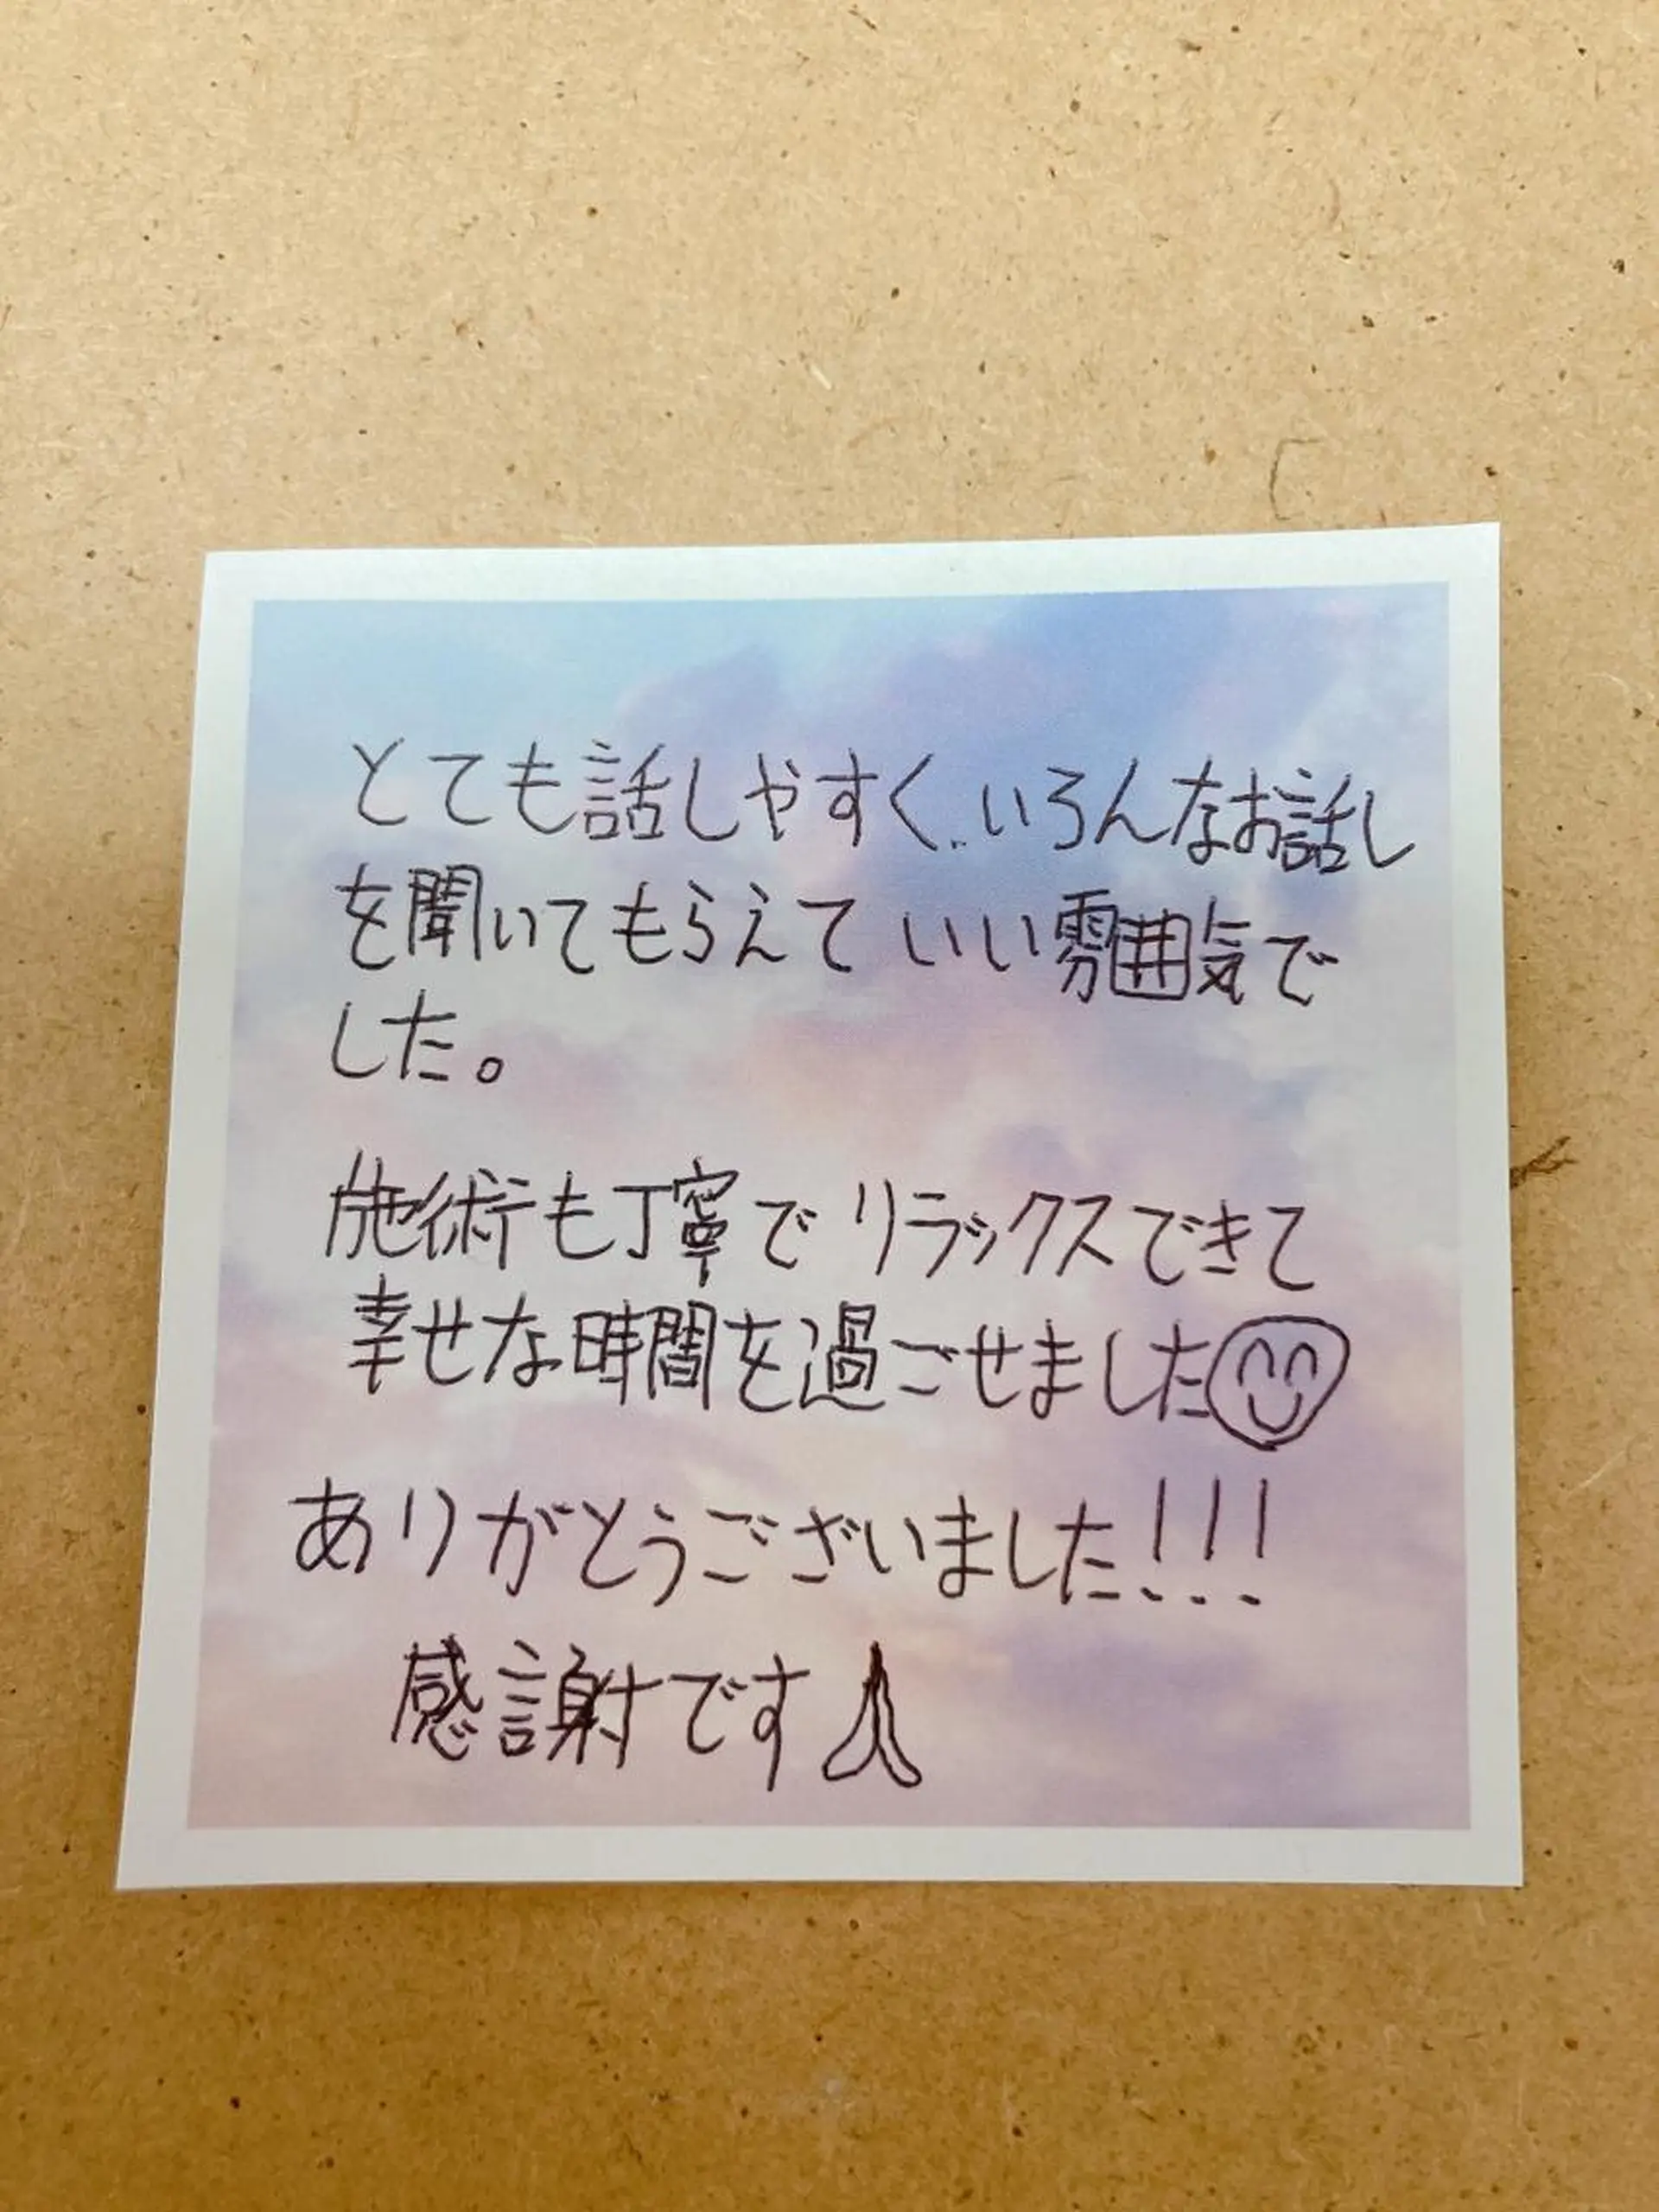 とても話しやすく、いろんなお話し
を聞いてもらえて いい雰囲気で
した。
施術も丁寧で リラックスできて
幸せな時間を過ごせました
ありがとうございました!!!
感謝です